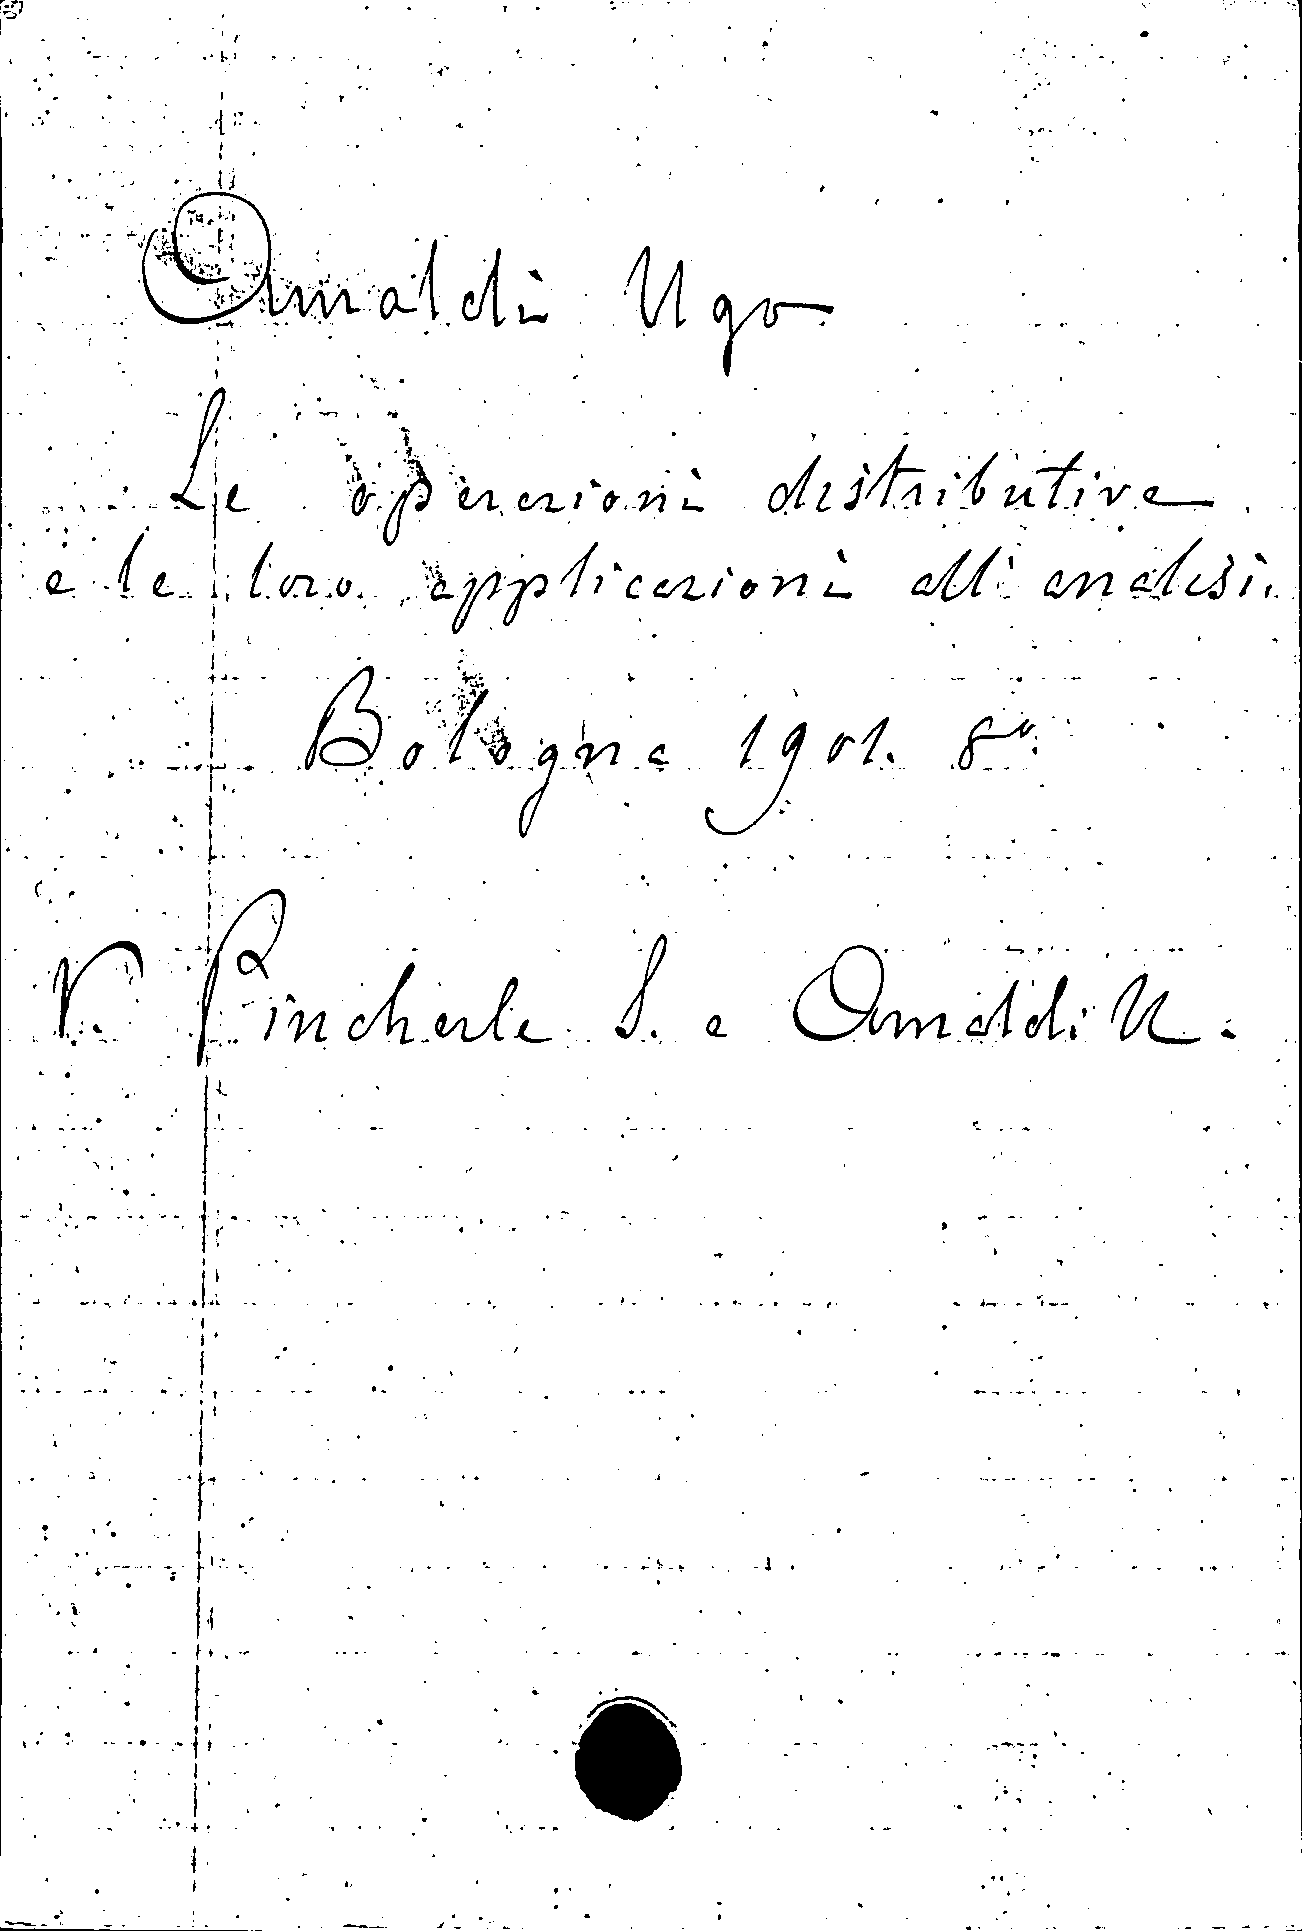 Amaldi Ugo
Le operazioni distributive
e le loro applicazioni all'analisi.
Bologna 1901. 8º.
V. Pincherle S. e Amaldi U.